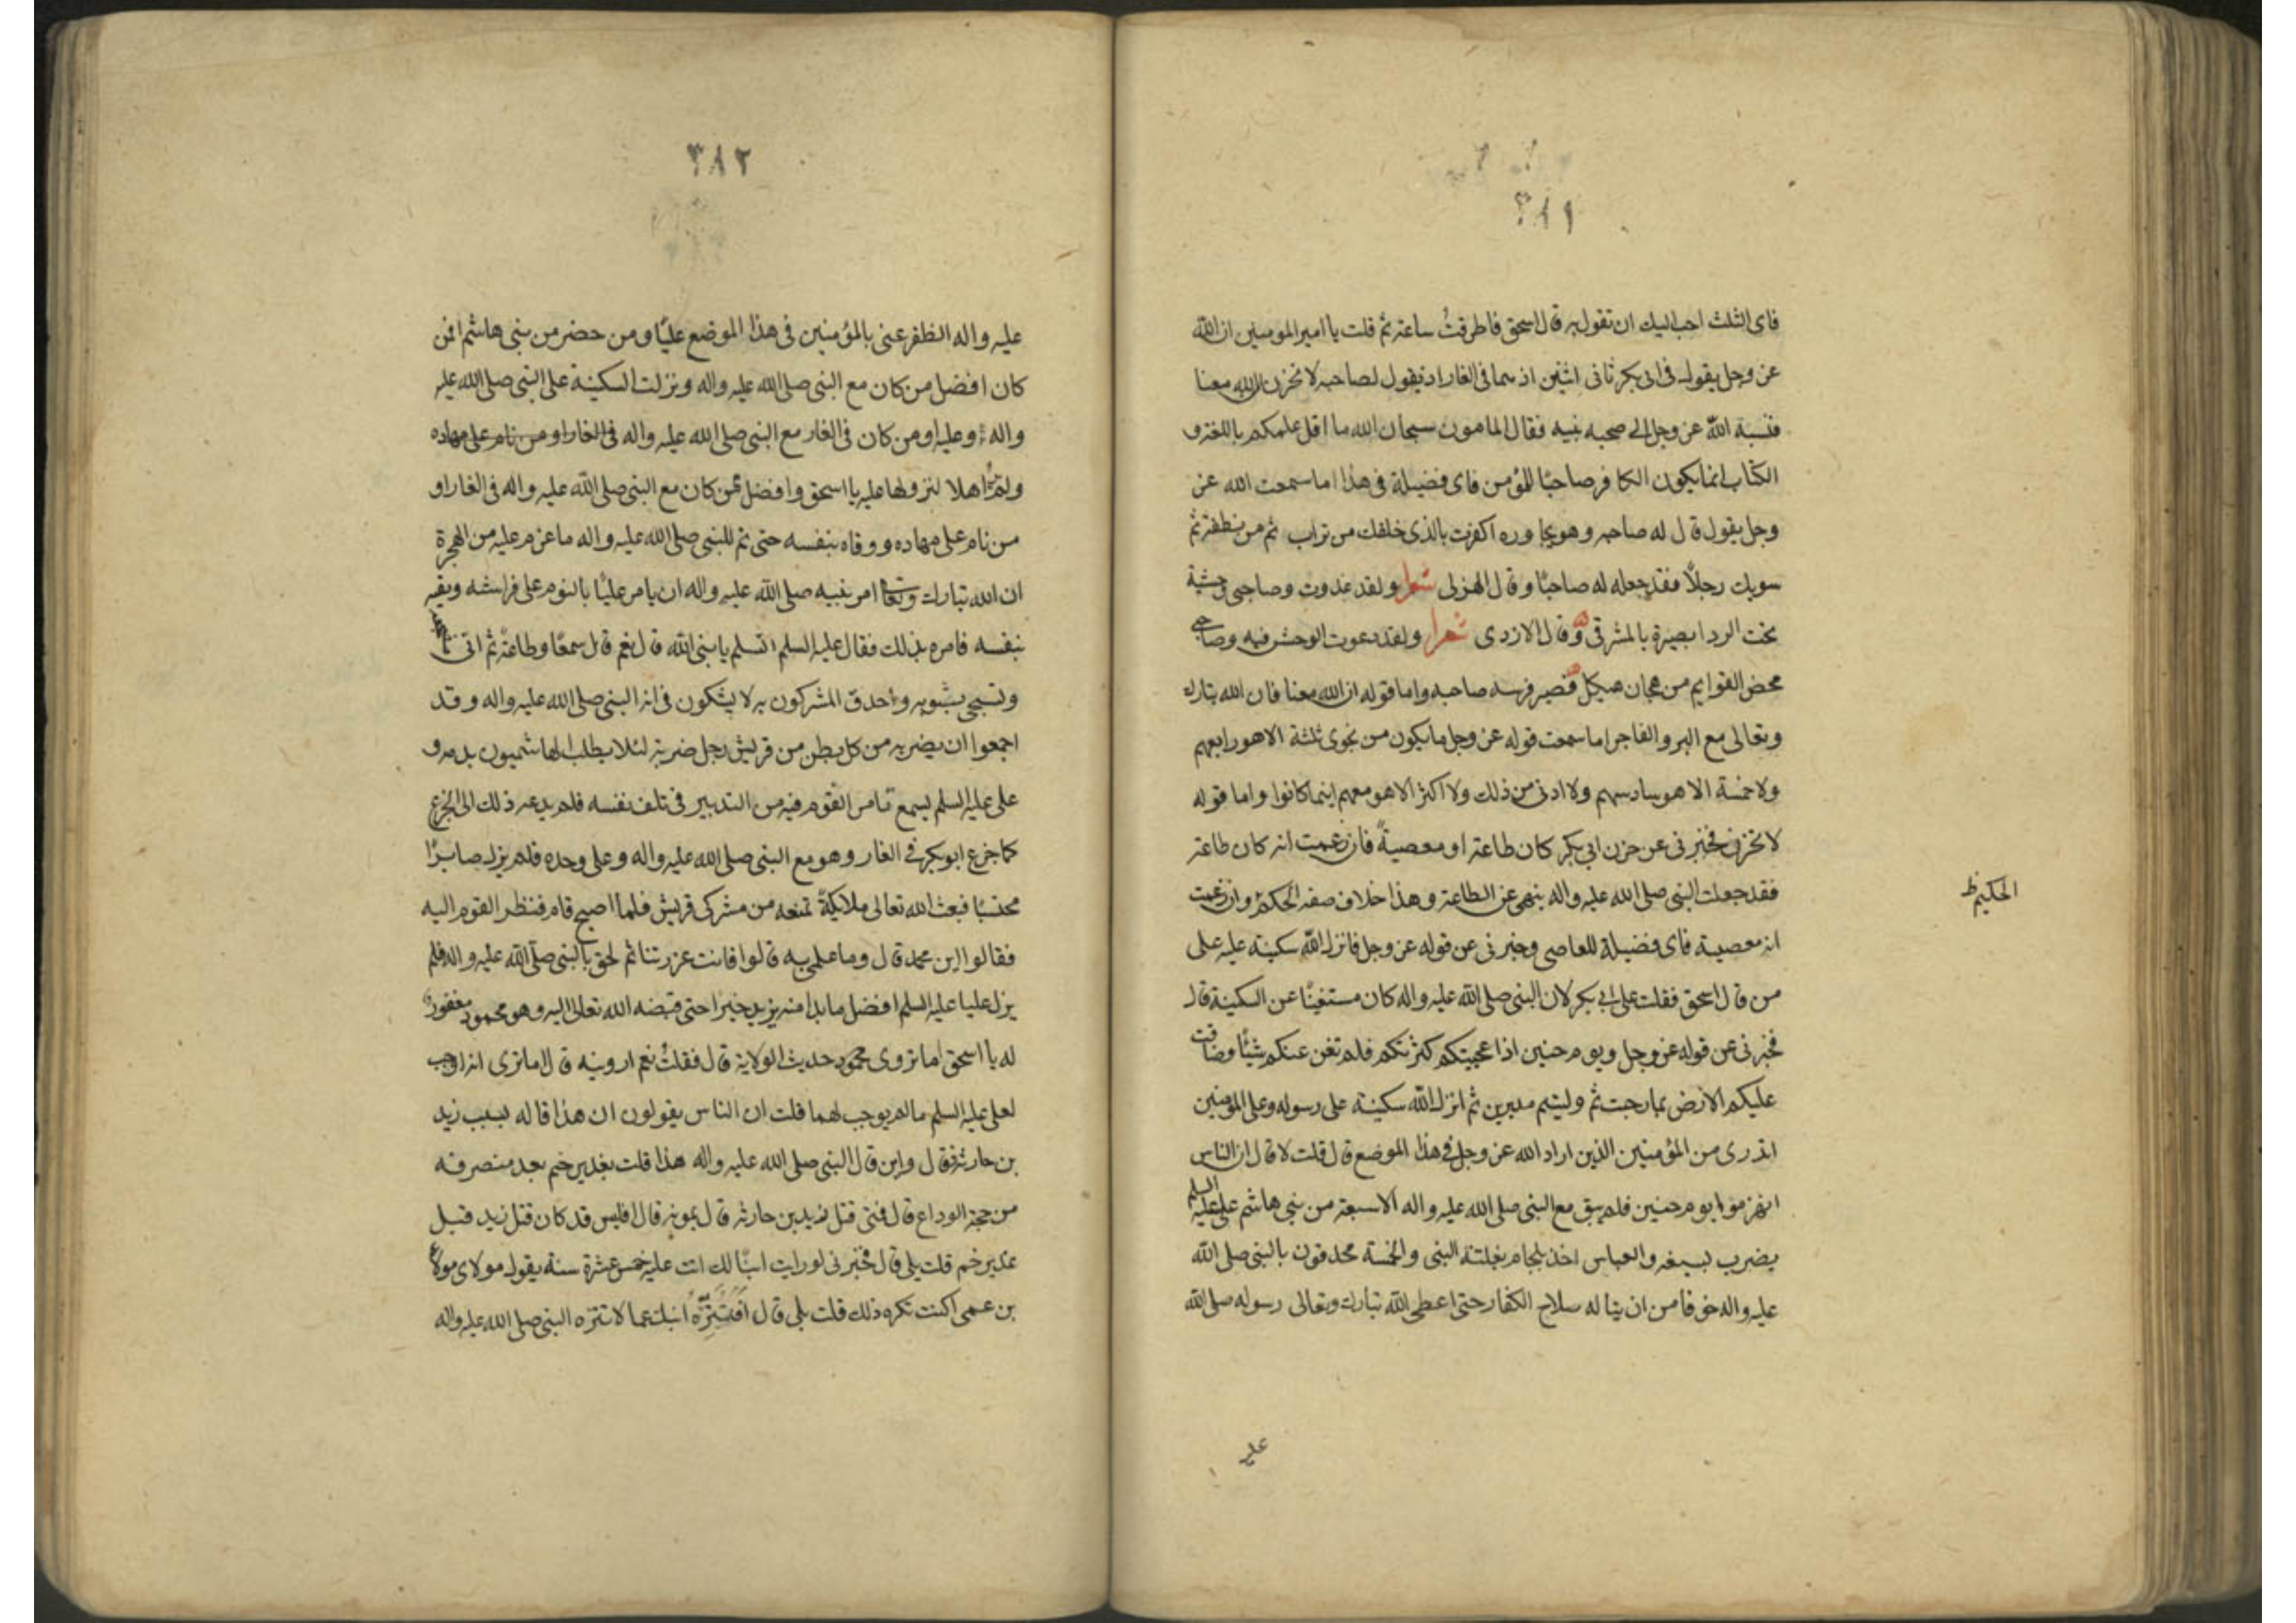 ٣٨١
فاى الثلث احب اليك ان تقول به قال اسحق فاطرقتُ ساعة ثم قلت يا امير المومنين ان الله
عز وجل يقول فى ابى بكر ثانى اثنين اذ هما فى الغار اذ يقول لصاحبه لا تحزن ان الله معنا
فنسبة الله عز وجل الى صحبه نبيه فقال المامون سبحان الله ما اقل علمكم باللغة و
الكتاب انما يكون الكافر صاحبًا للمؤمن فاى فضيلة فى هذا اما سمعت الله عز
وجل يقول قال له صاحبه وهو يحاوره اكفرت بالذى خلقك من تراب ثم من نطفة ثم
سويك رجلًا فقد جعله له صاحبًا وقال الهزلى شعرا ولقد غدوت وصاحبى وحشية
تحت الردا بصيرة بالمشرقى ه وقال الازدى شعرا ولقد دعوت الوحش فيه وصاحبى
محض القوايم من هجان هيكل ه فصير فرسه صاحبه واما قوله ان الله معنا فان الله تبارك
وتعالى مع البر والفاجر اما سمعت قوله عز وجل ما يكون من نجوى ثلثة الا هو رابعهم
ولا خمسة الا هو سادسهم ولا ادنى من ذلك ولا اكثر الا هو معهم اينما كانوا واما قوله
لا تحزن فخبرنى عن حزن ابى بكر كان طاعة او معصيةً فان زعمت انه كان طاعة
فقد جعلت النبى صلى الله عليه واله ينهى عن الطاعة وهذا خلاف صفة الحكم وان زعمت
الحكيم ظ
انه معصية فاى فضيلة للعاصى وخبرنى عن قوله عز وجل فانزل الله سكينة عليه على
من قال اسحق فقلت على ابى بكر لان النبى صلى الله عليه واله كان مستغنيًا عن السكينة قال
فخبرنى عن قوله عز وجل ويوم حنين اذا عجبتكم كثرتكم فلم تغن عنكم شيئًا وضاقت
عليكم الارض بما رحبت ثم وليتم مدبرين ثم انزل الله سكينة على رسوله وعلى المؤمنين
اتدرى من المؤمنين الذين اراد الله عز وجل فى هذا الموضع قال قلت لا قال ان الناس
انهزموا يوم حنين فلم يبق مع النبى صلى الله عليه واله الا سبعة من بنى هاشم على عليه السلم
يضرب بسيفه والعباس اخذ بلجام بغلته النبى والخمسة محدقون بالنبى صلى الله
عليه واله خوفا من ان يناله سلاح الكفار حتى اعطى الله تبارك وتعالى رسوله صلى الله
عليه
٣٨٢
عليه واله الظفر عنى بالمؤمنين فى هذا الموضع عليًا ومن حضر من بنى هاشم افمن
كان افضل من كان مع النبى صلى الله عليه واله ونزلت السكينة على النبى صلى الله عليه
واله وعليه او من كان فى الغار مع النبى صلى الله عليه واله فى الغار او من نام على مهاده
ولم اهلا لنزولها عليه يا اسحق وافضل ممن كان مع النبى صلى الله عليه واله فى الغار او
من نام على مهاده ووقاه بنفسه حتى تم للنبى صلى الله عليه واله ما عزم عليه من الهجرة
ان الله تبارك وتعالى امر نبيه صلى الله عليه واله ان يامر عليًا بالنوم على فراشه ويقيه
بنفسه فامره بذلك فقال عليه السلم اتسلم يا نبى الله قال نعم قال سمعًا وطاعةً ثم اتى
وتسجى بثوبه واحدق المشركون به لا يشكون فى انه النبى صلى الله عليه واله وقد
اجمعوا ان يضربه من كل بطن من قريش رجل ضربة لئلا يطلب الهاشميون بدمه و
على عليه السلم يسمع تامر القوم فيه من التدبير فى تلف نفسه فلم يدعه ذلك الى الجزع
كما جزع ابو بكر فى الغار وهو مع النبى صلى الله عليه واله وعلى وحده فلم يزل صابرًا
محتسبًا فبعث الله تعالى ملايكةً تمنعه من مشركى قريش فلما اصبح قام فنظر القوم اليه
فقالوا اين محمد قال وما علمى به قالوا فانت غررتنا ثم لحق بالنبى صلى الله عليه واله فلم
يزل عليا عليه السلم افضل ما بدا منه يزيد خيرا حتى قبضه الله تعالى اليه وهو محمود مغفور
له يا اسحق اما تروى محمود حديث الولاية قال فقلتُ نعم ارويه قال اما ترى انه اوجب
لعلى عليه السلم ما لم يوجب لهما قلت ان الناس يقولون ان هذا قاله بسبب زيد
بن حارثة فقال واين قال النبى صلى الله عليه واله هذا قلت بغدير خم بعد منصرفه
من حجة الوداع قال فمتى قتل زيد بن حارثه قال بموته قال افليس قد كان قتل زيد قبل
غدير خم قلت بلى قال فخبرنى لو رايت ابنًا لك اتت عليه خمس عشرة سنة يقول مولاى مولا
بن عمى اكنت تكره ذلك قلت بلى قال افَتُنَزِّهُ ابنك عما لا تنزه النبى صلى الله عليه واله